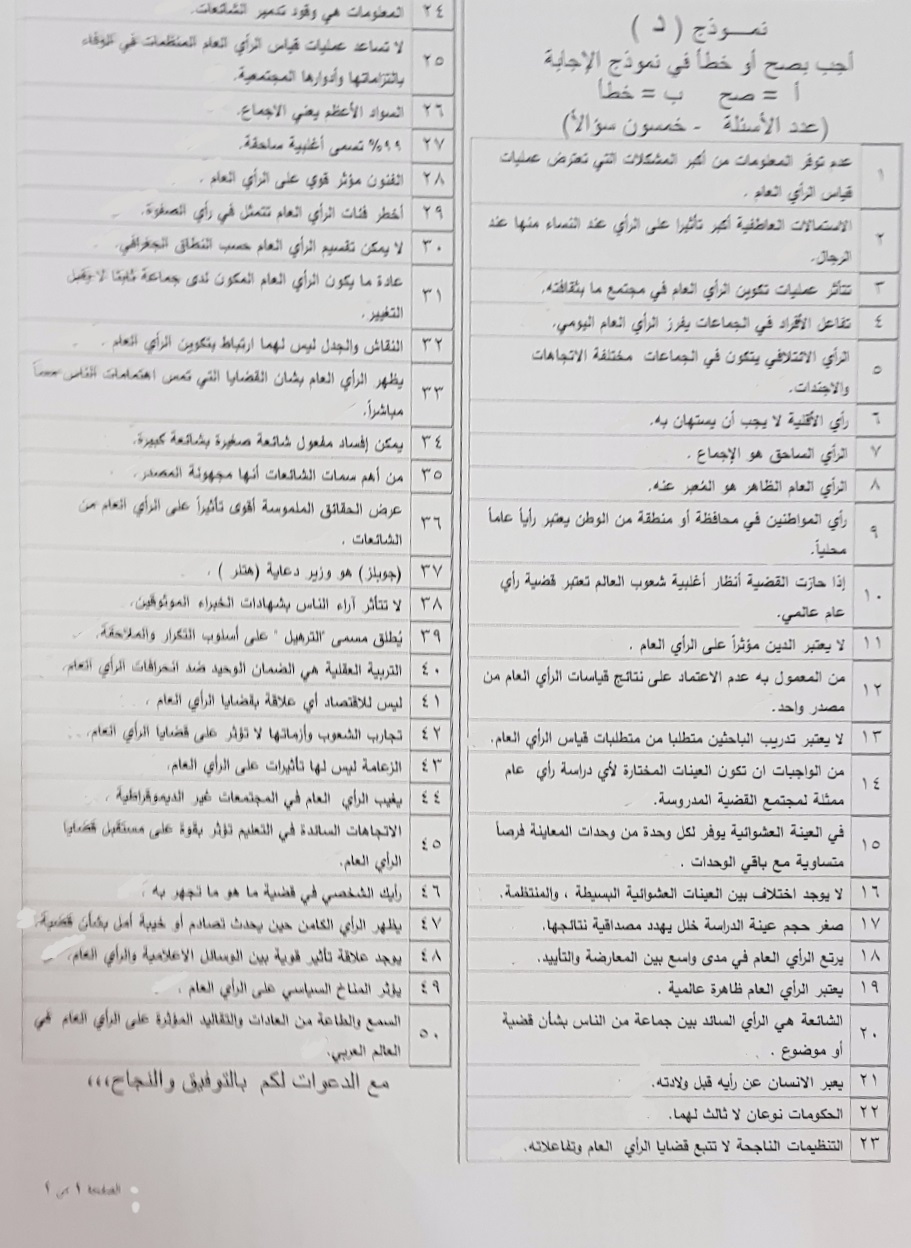 نمـــوذج ( د )
أجب بصح أو خطأ في نموذج الإجابة
أ = صح ب = خطأ
(عدد الأسئلة - خمسون سؤالاً)
١ عدم توفر المعلومات من أكبر المشكلات التي تعترض عمليات
قياس الرأي العام .
٢ الاستمالات العاطفية أكبر تأثيرا على الرأي عند النساء منها عند
الرجال.
٣ تتأثر عمليات تكوين الرأي العام في مجتمع ما بثقافته.
٤ تفاعل الأفراد في الجماعات يفرز الرأي العام اليومي.
٥ الرأي الائتلافي يتكون في الجماعات مختلفة الاتجاهات
والاجندات.
٦ رأي الأقلية لا يجب أن يستهان به.
٧ الرأي الساحق هو الإجماع .
٨ الرأي العام الظاهر هو المُعبر عنه.
٩ رأي المواطنين في محافظة أو منطقة من الوطن يعتبر رأياً عاماً
محلياً.
١٠ إذا حازت القضية أنظار أغلبية شعوب العالم تعتبر قضية رأي
عام عالمي.
١١ لا يعتبر الدين مؤثراً على الرأي العام .
١٢ من المعمول به عدم الاعتماد على نتائج قياسات الرأي العام من
مصدر واحد.
١٣ لا يعتبر تدريب الباحثين متطلبا من متطلبات قياس الرأي العام.
١٤ من الواجبات ان تكون العينات المختارة لأي دراسة رأي عام
ممثلة لمجتمع القضية المدروسة.
١٥ في العينة العشوائية يوفر لكل وحدة من وحدات المعاينة فرصاً
متساوية مع باقي الوحدات .
١٦ لا يوجد اختلاف بين العينات العشوائية البسيطة ، والمنتظمة.
١٧ صغر حجم عينة الدراسة خلل يهدد مصداقية نتائجها.
١٨ يرتع الرأي العام في مدى واسع بين المعارضة والتأييد.
١٩ يعتبر الرأي العام ظاهرة عالمية .
٢٠ الشائعة هي الرأي السائد بين جماعة من الناس بشأن قضية
أو موضوع .
٢١ يعبر الانسان عن رأيه قبل ولادته.
٢٢ الحكومات نوعان لا ثالث لهما.
٢٣ التنظيمات الناجحة لا تتبع قضايا الرأي العام وتفاعلاته.
٢٤ المعلومات هي وقود تدمير الشائعات.
٢٥ لا تساعد عمليات قياس الرأي العام المنظمات في الوفاء
بالتزاماتها وأدوارها المجتمعية.
٢٦ السواد الأعظم يعني الاجماع.
٢٧ ٩٩% تسمى أغلبية ساحقة.
٢٨ الفنون مؤثر قوي على الرأي العام .
٢٩ أخطر فئات الرأي العام تتمثل في رأي الصفوة.
٣٠ لا يمكن تقسيم الرأي العام حسب النطاق الجغرافي.
٣١ عادة ما يكون الرأي العام المكون لدى جماعة ثابتا لا يقبل
التغيير.
٣٢ النقاش والجدل ليس لهما ارتباط بتكوين الرأي العام .
٣٣ يظهر الرأي العام بشأن القضايا التي تمس اهتمامات الناس مساً
مباشراً.
٣٤ يمكن إفساد مفعول شائعة صغيرة بشائعة كبيرة.
٣٥ من أهم سمات الشائعات أنها مجهولة المصدر.
٣٦ عرض الحقائق الملموسة أقوى تأثيراً على الرأي العام من
الشائعات .
٣٧ (جوبلز) هو وزير دعاية (هتلر ) .
٣٨ لا تتأثر آراء الناس بشهادات الخبراء الموثوقين.
٣٩ يُطلق مسمى "الترهيل" على أسلوب التكرار والملاحقة.
٤٠ التربية العقلية هي الضمان الوحيد ضد انحرافات الرأي العام.
٤١ ليس للاقتصاد أي علاقة بقضايا الرأي العام .
٤٢ تجارب الشعوب وأزماتها لا تؤثر على قضايا الرأي العام.
٤٣ الزعامة ليس لها تأثيرات على الرأي العام.
٤٤ يغيب الرأي العام في المجتمعات غير الديموقراطية .
٤٥ الاتجاهات السائدة في التعليم تؤثر بقوة على مستقبل قضايا
الرأي العام.
٤٦ رأيك الشخصي في قضية ما هو ما تجهر به .
٤٧ يظهر الرأي الكامن حين يحدث تصادم أو خيبة أمل بشأن قضية.
٤٨ يوجد علاقة تأثير قوية بين الوسائل الاعلامية والرأي العام.
٤٩ يؤثر المناخ السياسي على الرأي العام .
٥٠ السمع والطاعة من العادات والتقاليد المؤثرة على الرأي العام في
العالم العربي.
مع الدعوات لكم بالتوفيق والنجاح،،،
الصفحة ٢ من ٢